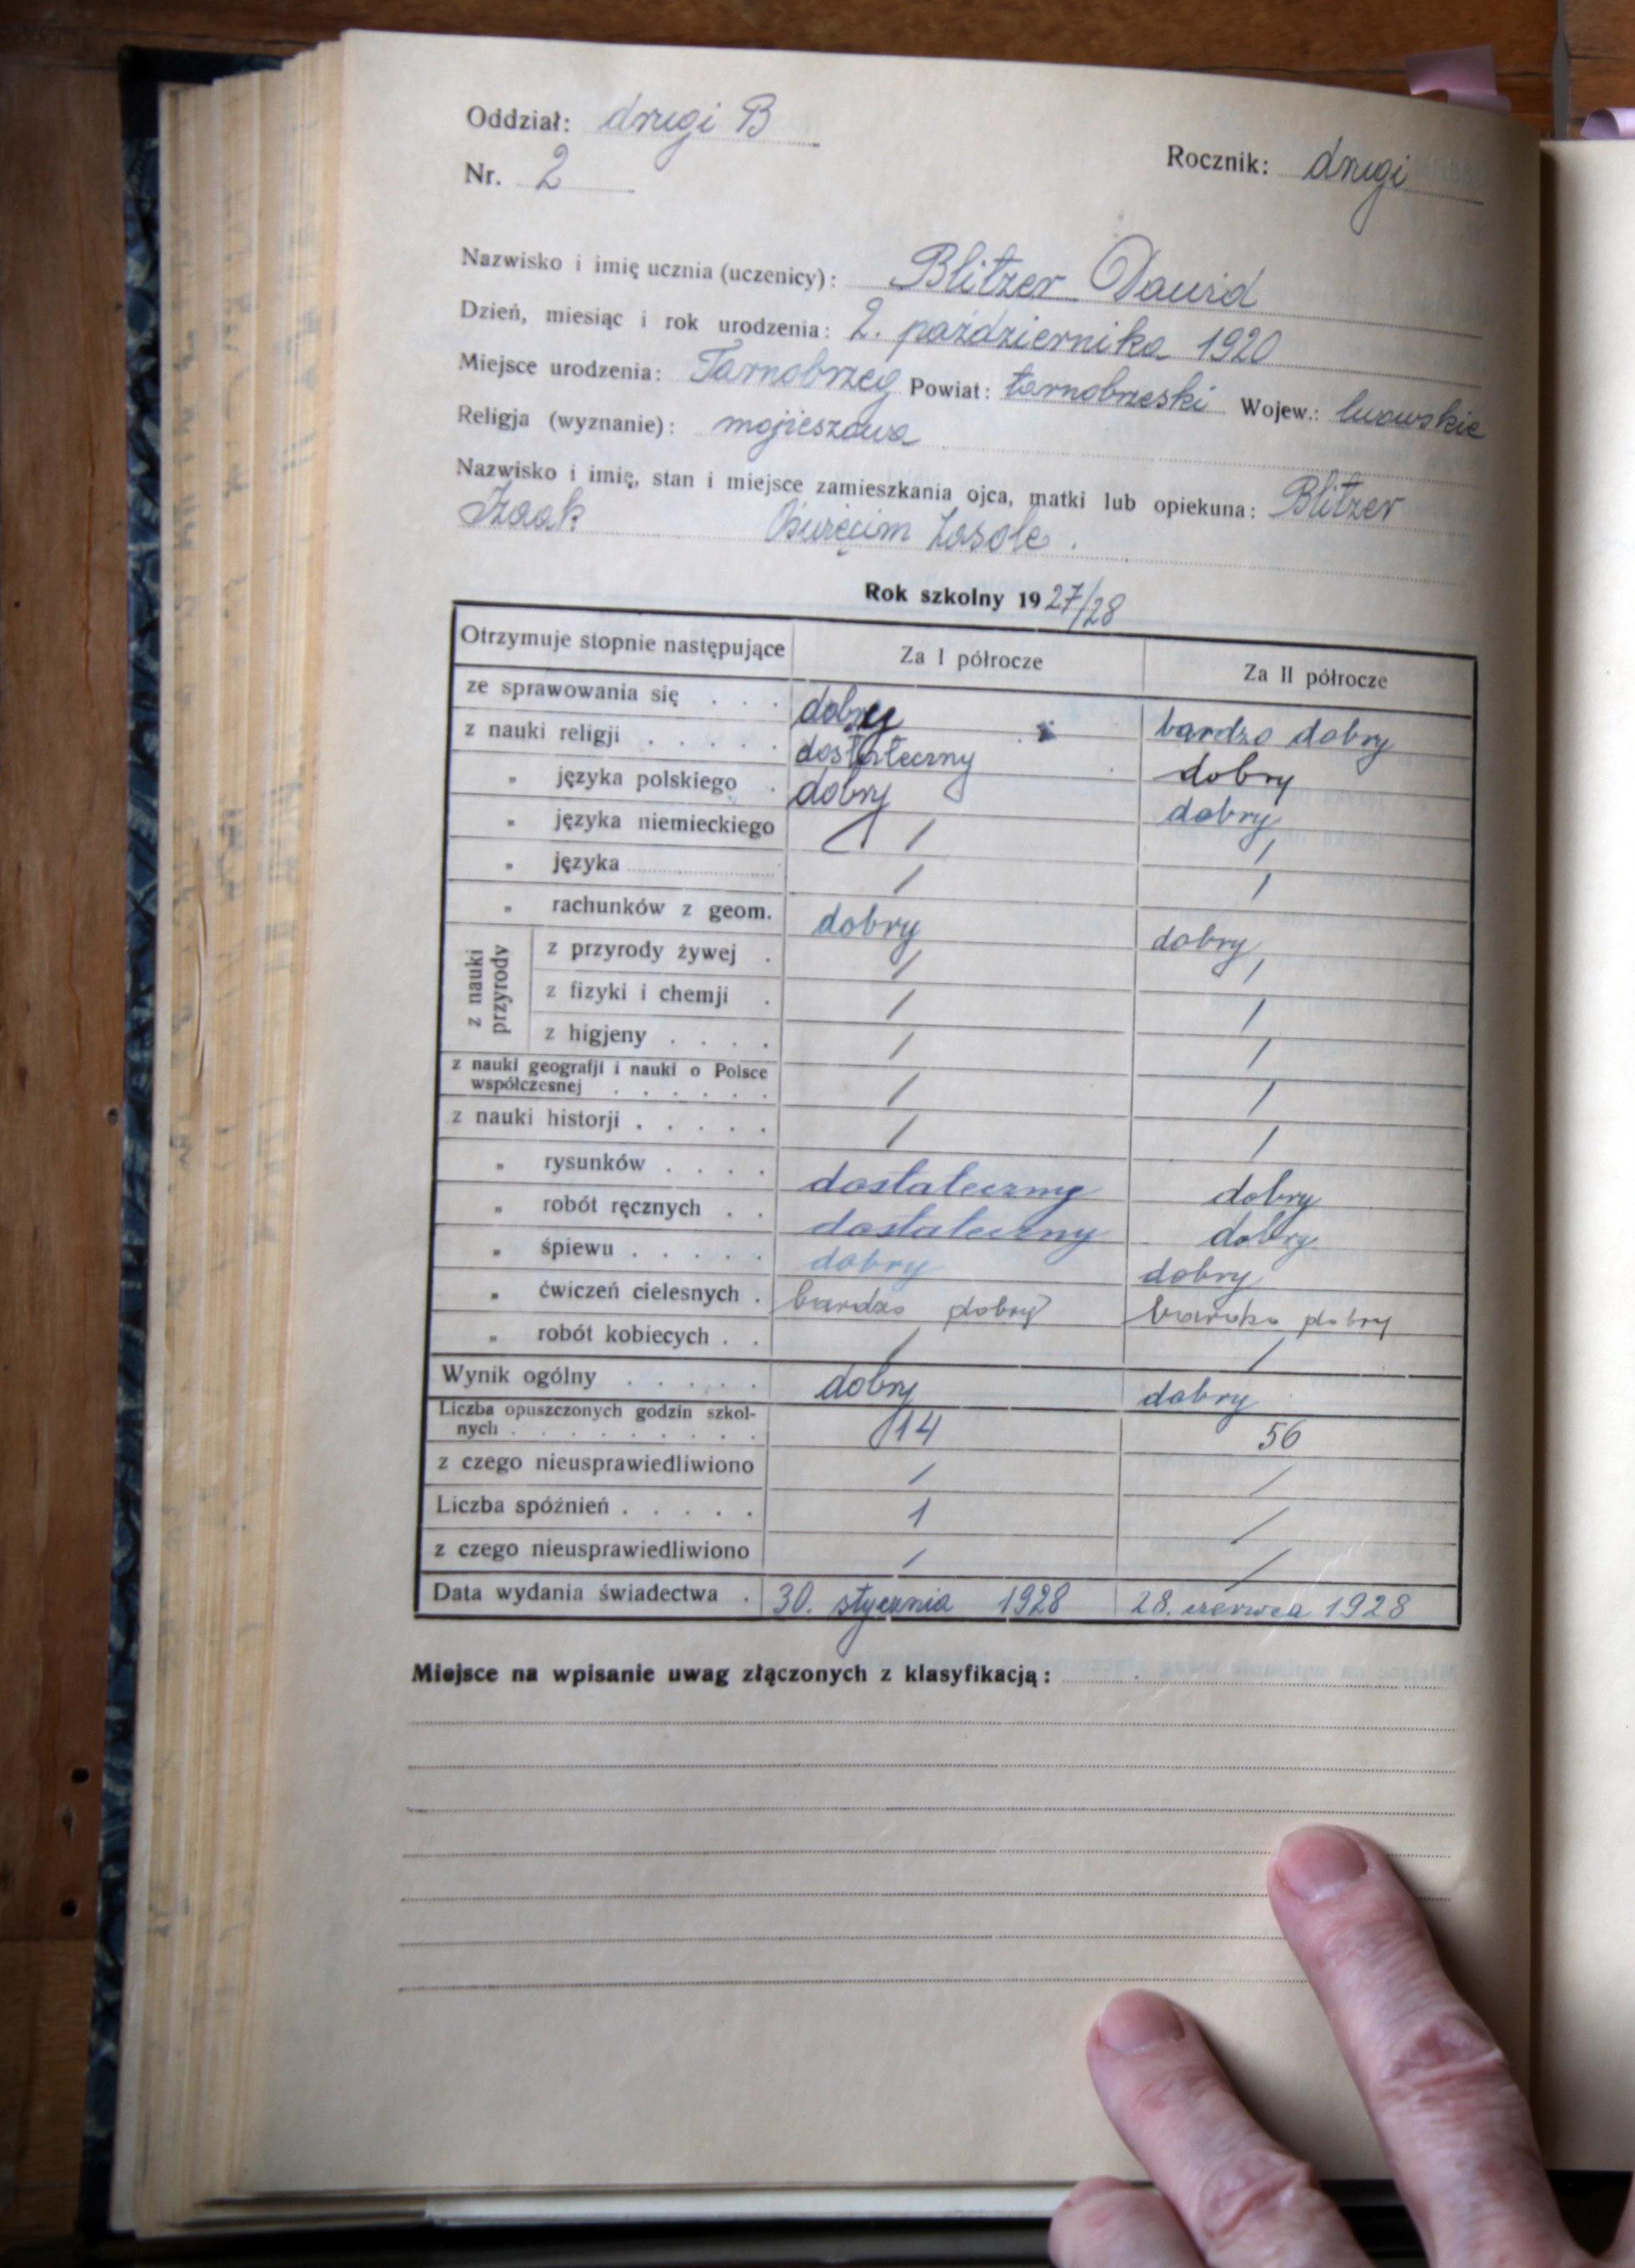 Oddział: drugi B
Nr. 2
Rocznik: drugi
Nazwisko i imię ucznia (uczenicy): Blitzer Dawid
Dzień, miesiąc i rok urodzenia: 2. października 1920
Miejsce urodzenia: Tarnobrzeg Powiat: tarnobrzeski Wojew.: lwowskie
Religja (wyznanie): mojżeszowa
Nazwisko i imię, stan i miejsce zamieszkania ojca, matki lub opiekuna: Blitzer
Izaak Oświęcim Zasole.
Rok szkolny 1927/28
Otrzymuje stopnie następujące Za I półrocze Za II półrocze
ze sprawowania się . . . dobry bardzo dobry
z nauki religji . . . . . dostateczny dobry
" języka polskiego . dobry dobry
" języka niemieckiego / /
" języka / /
" rachunków z geom. dobry dobry
z nauki przyrody
z przyrody żywej . / /
z fizyki i chemji . / /
z higjeny . . . . / /
z nauki geografji i nauki o Polsce
współczesnej . . . . . . / /
z nauki historji . . . . . / /
" rysunków . . . . dostateczny dobry
" robót ręcznych . . dostateczny dobry
" śpiewu . . . . . dobry dobry
" ćwiczeń cielesnych . bardzo dobry bardzo dobry
" robót kobiecych . . / /
Wynik ogólny . . . . . dobry dobry
Liczba opuszczonych godzin szkol-
nych . . . . . . . . . 14 56
z czego nieusprawiedliwiono / /
Liczba spóźnień . . . . . 1 /
z czego nieusprawiedliwiono / /
Data wydania świadectwa . 30. stycznia 1928 28. czerwca 1928
Miejsce na wpisanie uwag złączonych z klasyfikacją: